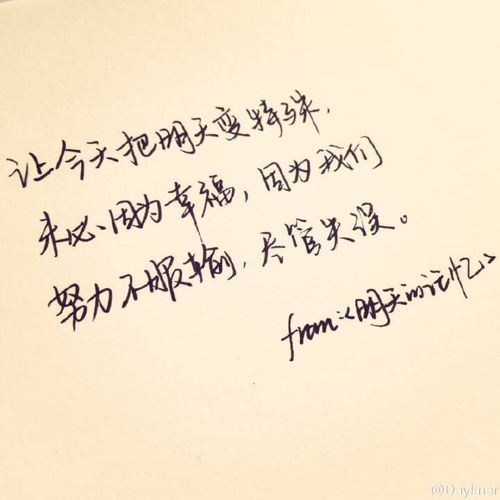 让今天把明天变特殊，
未必因为幸福，因为我们
努力不服输，尽管失误。
from：《明天的记忆》
@Dayliner